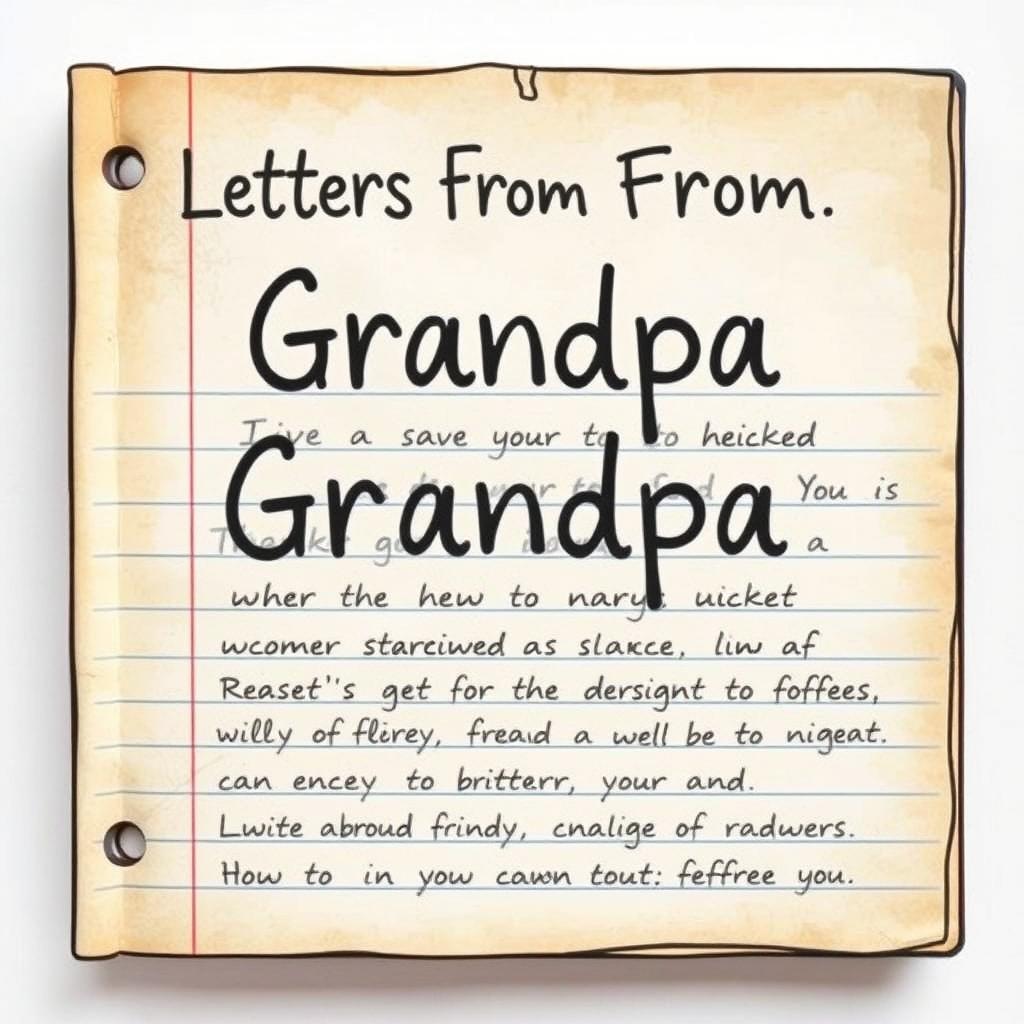 Letters From From.
Grandpa
I ive a save your to to heicked
Grandpa
You is
a
wher the hew to nary: uicket
wcomer starciwed as slakce, liw af
Reaset''s get for the dersignt to foffees,
willy of flirey, freaid a well be to nigeat.
can encey to britterr, your and.
Lwite abroud frindy, cnalige of radwers.
How to in yow cawn tout: feffree you.